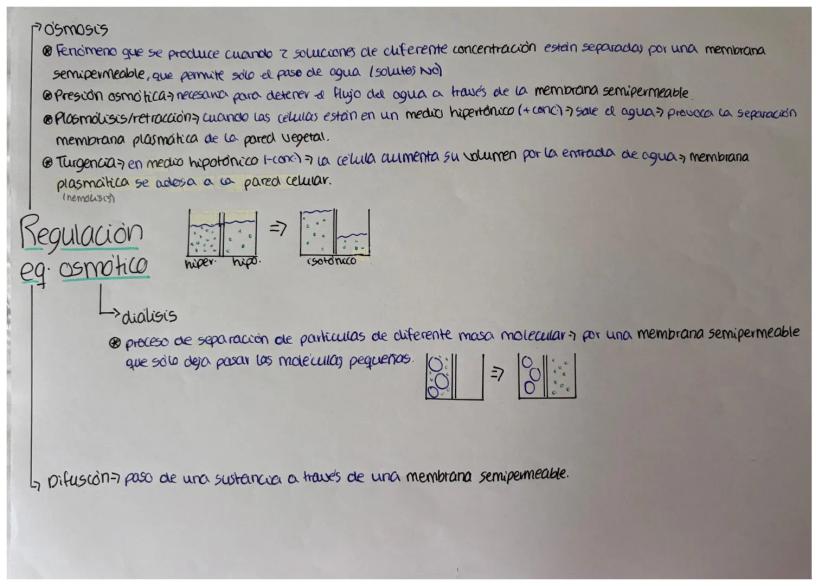 →ósmosis
⊛ Fenómeno que se produce cuando 2 soluciones de diferente concentración están separadas por una membrana
semipermeable, que permite sólo el paso de agua (solutos NO)
⊛ Presión osmótica→ necesaria para detener el flujo del agua a través de la membrana semipermeable
⊛ Plasmólisis/retracción→ cuando las células están en un medio hipertónico (+conc)→ sale el agua→ provoca la separación
membrana plasmática de la pared vegetal.
⊛ Turgencia→ en medio hipotónico (-conc)→ la célula aumenta su volumen por la entrada de agua→ membrana
plasmática se adosa a la pared celular.
(hemólisis)
Regulación
eq. osmótico
hiper. hipo. ⇒ isotónico
→ diálisis
⊛ proceso de separación de partículas de diferente masa molecular→ por una membrana semipermeable
que sólo deja pasar las moléculas pequeñas. ⇒
→ Difusión→ paso de una sustancia a través de una membrana semipermeable.